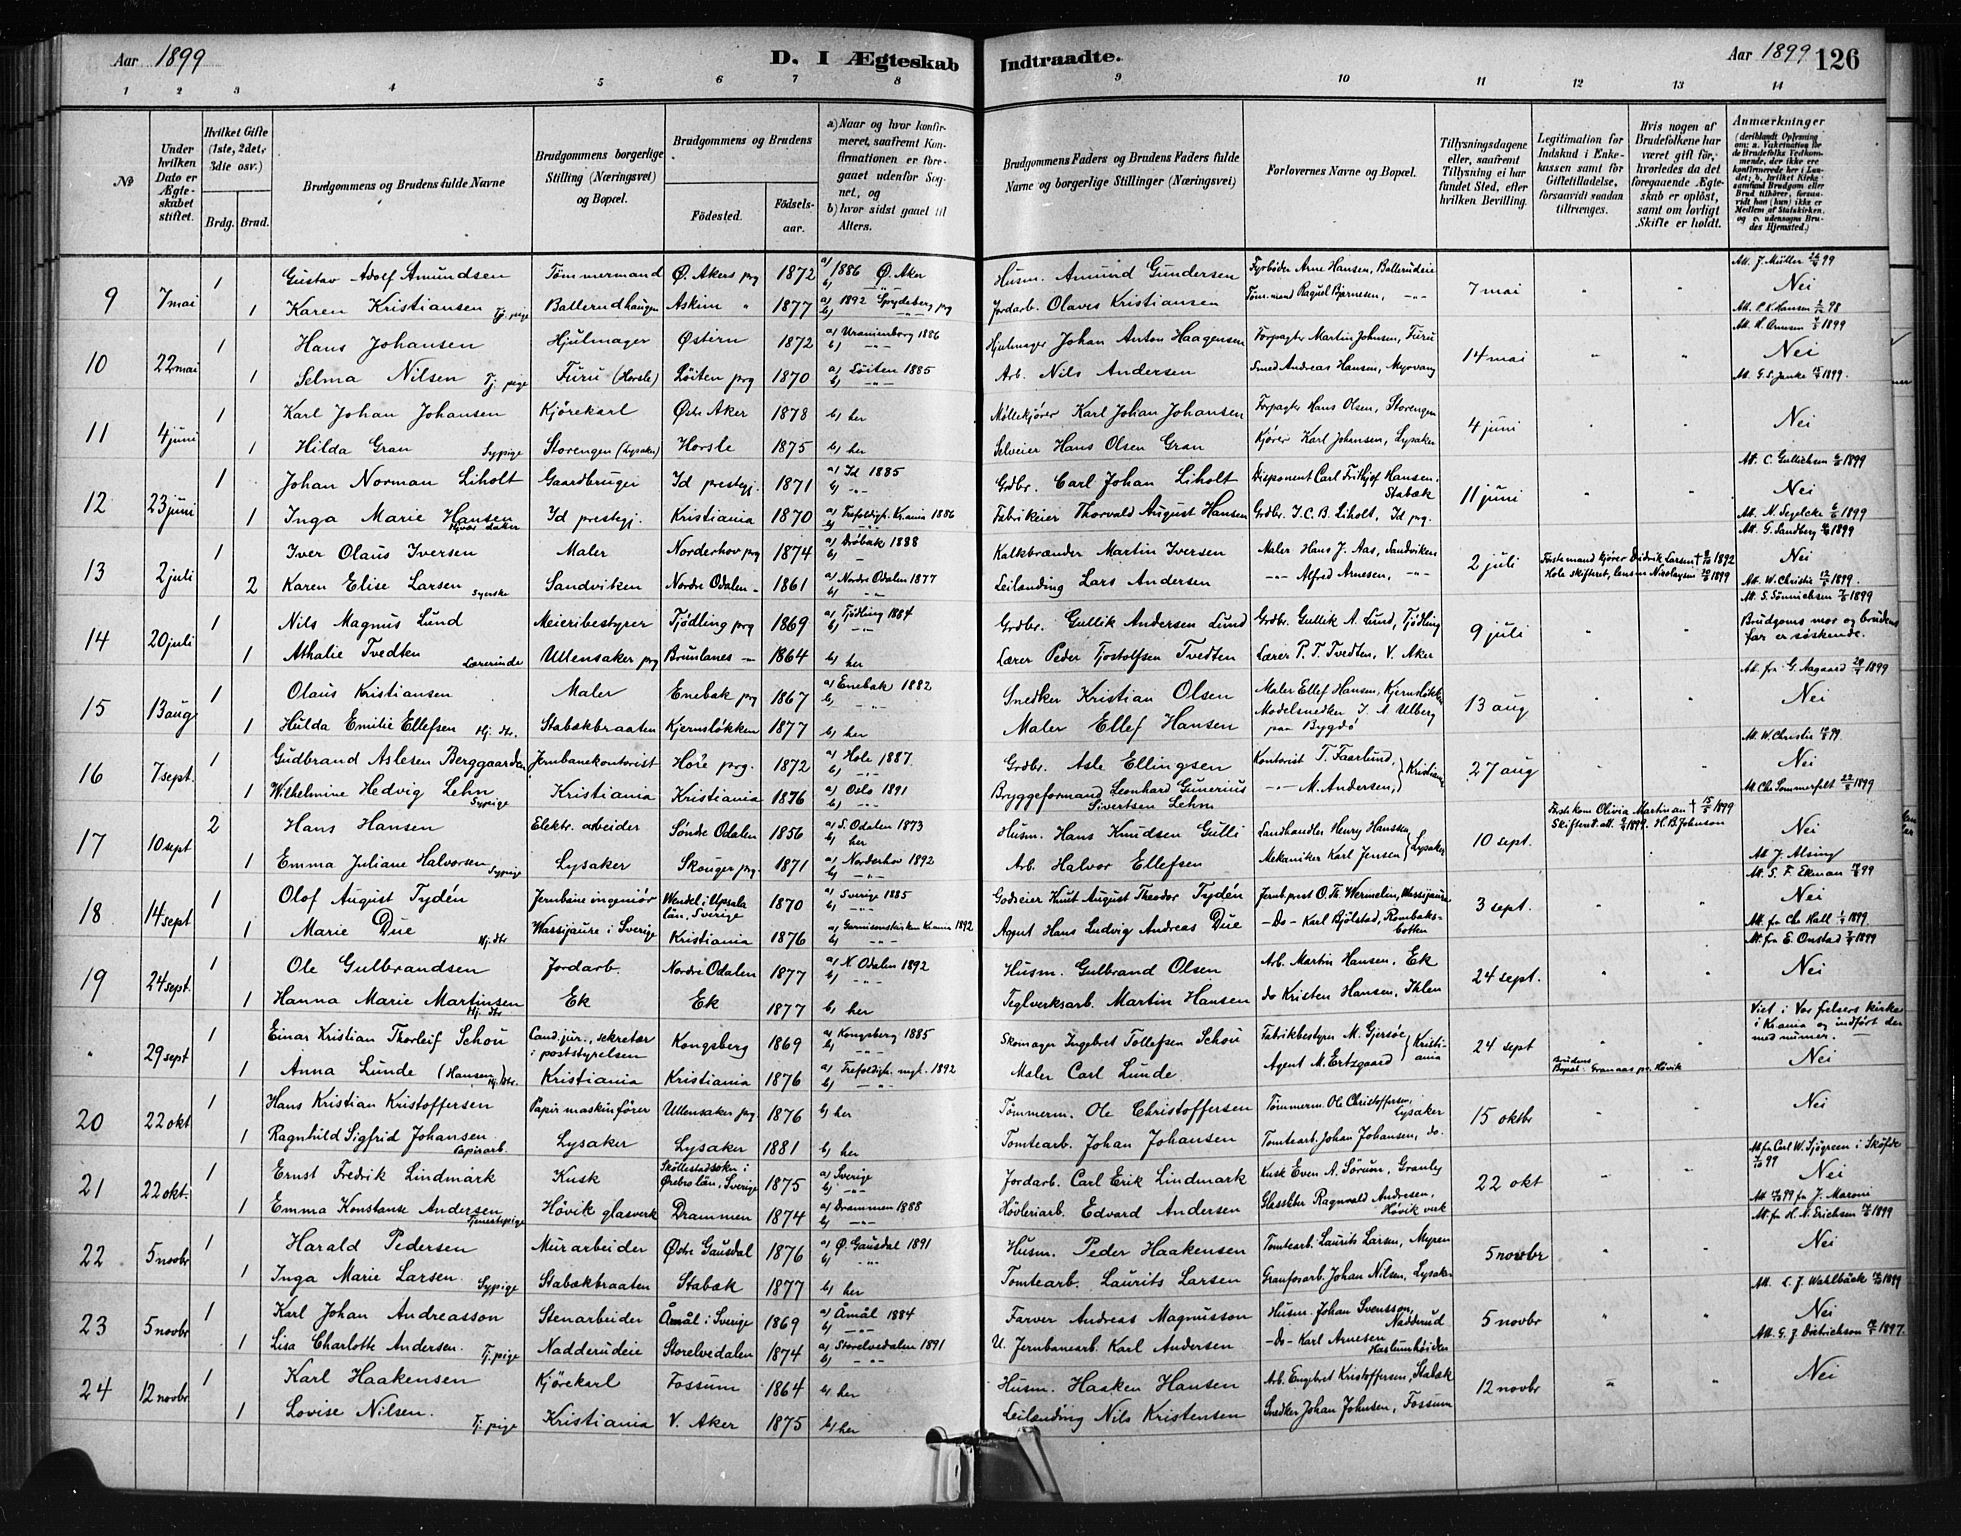 Aar 1899 D. I Ægteskab Indtraadte. Aar 1899 126
1 2 3 4 5 6 7 8 9 10 11 12 13 14
No
Under hvilken Dato er Ægteskabet stiftet.
Hvilket Gifte (1ste, 2det, 3die osv.) Brdg. Brud.
Brudgommens og Brudens fulde Navne
Brudgommens borgerlige Stilling (Næringsvei) og Bopæl.
Brudgommens og Brudens Födested. Födselsaar.
a) Naar og hvor konfirmeret, saafremt Konfirmationen er foregaaet udenfor Sognet, og b) hvor sidst gaaet til Alters.
Brudgommens Faders og Brudens Faders fulde Navne og borgerlige Stillinger (Næringsvei)
Forlovernes Navne og Bopæl.
Tillysningsdagene eller, saafremt Tillysning ei har fundet Sted, efter hvilken Bevilling.
Legitimation for Indskud i Enkekassen samt for Giftetilladelse, forsaavidt saadan tiltrænges.
Hvis nogen af Brudefolkene har været gift för, hvorledes da det foregaaende Ægteskab er oplöst, samt om lovligt Skifte er holdt.
Anmærkninger (deriblandt Oplysning om: a. Vakcination för de Brudefolks Vedkommende, der ikke ere konfirmerede her i Landet; b. hvilket Kirkesamfund Brudgom eller Brud tilhörer, forsaavidt han (hun) ikke er Medlem af Statskirken, og c. udensogns Brudes Hjemsted.)
9 7 mai 1 Gustav Adolf Amundsen Tömmermand Ø. Akers prg 1872 a) 1886 Ø. Aker b) Husm. Amund Gundersen Fyrböder Arne Hansen, Ballerudeie 7 mai " " Att. J. Müller 99 Nei
1 Karen Kristiansen Tj. pige Ballerudhaugen Askim " 1877 a) 1892 Spydeberg prg b) -"- Jordarb. Olaves Kristiansen Töm.mand Raguel Bjarnesen, -"- Att. P. K. Hansen 98
10 22 mai 1 Hans Johansen Hjulmager Østern 1872 a) Uranienborg 1886 b) -"- Hjulmager Johan Anton Haagensen Forpagter Martin Johnsen, Furu 14 mai " " 1899 Nei
1 Selma Nilsen Tj. pige Furu (Horsle) Löiten prg 1870 a) Löiten 1885 b) -"- Arb. Nils Andersen Smed Andreas Hansen, Myrvang Att. G. S. Janke 1899.
11 4 juni 1 Karl Johan Johansen Kjörekarl Østr Aker 1878 b) her Möllekjörer Karl Johan Johansen Forpagter Hans Olsen, Storengen 4 juni " " Nei
1 Hilda Gran Sypige Storengen (Lysaker) Horsle 1875 b) her Selveier Hans Olsen Gran Kjörer Karl Johansen, Lysaker
12 23 juni 1 Johan Norman Liholt Gaardbruger Id prestegj. 1871 a) Id 1885 b) -"- Grdbr. Carl Johan Liholt Disponent Carl Frithjof Hansen, Stabæk 11 juni " " Att. C. Gullichsen 1899 Nei
1 Inga Marie Hansen Hjvær. datter Id prestegj. Kristiania 1870 a) Trefoldigh. Kr.ania 1886 b) -"- Fabrikeier Thorvald August Hansen Grdbr. I. C. B. Liholt, Id prg. Att. N. Segelcke 1899
13 2 juli 1 Iver Olaus Iversen Maler Norderhov prg 1874 a) Dröbak 1888 b) -"- Kalkbrænder Martin Iversen Maler Hans J. Aas, Sandviken 2 juli Förste mand kjörer Didrik Larsen † 1892 Hole skifteret, lensm Nicolaysen 1899 Att. G. Sandberg 1899 Nei
2 Karen Elise Larsen Syerske Sandviken Nordre Odalen - 1861 a) Nordre Odalen 1877 b) -"- Leilænding Lars Andersen -"- Alfred Arnesen, -"- Att. W. Christie 1899.
14 20 juli 1 Nils Magnus Lund Meieribestyrer Tjödling prg 1869 a) Tjödling 1884 b) -"- Grdbr. Gullik Andersen Lund Grdbr. Gullik A. Lund, Tjödling 9 juli " " Att. S. Sönnichsen 1899 Brudgoms mor og brudens far er söskende.
1 Athalie Tvedten Lærerinde Ullensaker prg Brunlanes - 1864 b) her Lærer Peder Tjostolfsen Tvedten Lærer P. T. Tvedten, V. Aker
15 13 aug 1 Olaus Kristiansen Maler Enebak prg 1867 a) Enebak 1882 b) -"- Snedker Kristian Olsen Maler Ellef Hansen, Kjernsløkken 13 aug " " Att. fra G. Aagaard 1899 Nei
1 Hulda Emilie Ellefsen Hj. dtr. Stabækbraaten Kjernsløkken 1877 b) her Maler Ellef Hansen Modelsnedker I. A. Ulberg paa Bygdö
16 7 sept. 1 Gudbrand Aslesen Berggaarden Jernbanekontorist Hole prg. 1872 a) Hole 1887. b) -"- Grdbr. Asle Ellingsen Kontorist T. Faarlund, Kristiania 27 aug Att. W. Christie 99. Nei
1 Wilhelmine Hedvig Lehn Sypige Kristiania Kristiania 1876 a) Oslo 1891 b) -"- Bryggeformand Leonhard Gunerius Sivertsen Lehn -"- M. Andersen, Att. Chr. Sommerfelt 1899
17 10 sept 2 Hans Hansen Elektr. arbeider Söndre Odalen 1856 a) S. Odalen 1873 b) her Husm. Hans Knudsen Gulli Landhandler Henry Hansken, Lysaker 10 sept. Förste kone Olivia Martinan † 1899 Skifteret. att. 1899. H. B. Johnson Nei
1 Emma Juliane Halvorsen Sypige Lysaker Skouger prg. 1871 a) Norderhov 1892 b) -"- Arb. Halvor Ellefsen Mekaniker Karl Jensen Att. J. Alsing
18 14 sept 1 Olof August Tydén Jernbaneingeniör Wendel i Upsala län, Sverige 1870 a) Sverige 1885 b) -"- Godseier Knut August Theodor Tydén Jernb.prest O. Th. Wermelin, Wassijaure 3 sept. " " Att. S. F. Ekman 99 Nei
1 Marie Due Hj. dtr Wassijaure i Sverige Kristiania 1876 a) Garnisonskirken Kr.ania 1892 b) -"- Agent Hans Ludvig Andreas Due -Do- Karl Bjölstad, Rombaksbotten Att. fra Chr. Hall 1899
19 24 sept. 1 Ole Gulbrandsen Jordarb. Nordre Odalen 1877 a) N. Odalen 1892 b) -"- Husm. Gulbrand Olsen Arb. Martin Hansen, Ek 24 sept. " " Att. fra E. Onstad 1899 Nei
1 Hanna Marie Martinsen Hj. dtr Ek Ek 1877 b) her Teglverksarb. Martin Hansen do Kristen Hansen, Ihlen
" 29 sept 1 Einar Kristian Thorleif Schou Cand. jur., sekretær i poststyrelsen Kongsberg 1869 a) Kongsberg 1885 b) -"- Skomager Ingebret Tollefsen Schou Fabrikbestyrer M. Gjersöe Kristiania 24 sept " " Viet i Vor frelsers kirke i Kr.ania og indfört der med numer. Nei
1 Anna Lunde (Hansen) Hj. dtr. Kristiania Kristiania 1876 a) Trefoldigh. mgh. 1892 b) -"- Maler Carl Lunde Agent M. Ertzgaard Brudens Bopæl: Granaas pr. Hövik
20 22 okt 1 Hans Kristian Kristoffersen Papirmaskinförer Ullensaker prg. 1876 b) her Tömmerm. Ole Christoffersen Tömmerm. Ole Christoffersen, Lysaker 15 oktbr " " Nei
1 Ragnhild Sigfrid Johansen Papirarb. Lysaker Lysaker 1881 b) her Tomtearb. Johan Johansen Tomtearb. Johan Johansen, do.
21 22 okt. 1 Ernst Fredrik Lindmark Kusk Sköllestadsokn i Ørebro län, Sverige 1875 a) Sverige b) -"- Jordarb. Carl Erik Lindmark Kusk Even A. Sörum, Granly 22 okt " " Att. fra Carl W. Sjögreen i Sköfde 99 Nei
1 Emma Konstanse Andersen Tjenestepige Hövik glasverk Drammen 1874 a) Drammen 1888 b) -"- Hövleriarb. Edvard Andersen Glassliber Ragnvald Andresen, Hövik verk Att 99 fra J. Maroni
22 5 novbr 1 Harald Pedersen Murarbeider Østre Gausdal 1876 a) Ø. Gausdal 1891 b) -"- Husm. Peder Haakensen Tomtearb. Laurits Larsen, Myren 5 novbr " " Att. fra H. N. Erichsen 1899 Nei
1 Inga Marie Larsen. Sypige Stabækbraaten Stabæk 1877 b) her Tomtearb. Laurits Larsen Granfosarb. Johan Nilsen, Lysaker
23 5 novbr 1 Karl Johan Andreasson Stenarbeider Åmål i Sverige 1869 a) Åmål 1884 b) -"- Farver Andreas Magnusson Husm. Johan Svensson, Nadderud 5 novbr " " Att. C. J. Wahlbäck 1899 Nei
1 Lisa Charlotte Andersen. Tj. pige Nadderudeie Storelvedalen 1874 a) Storelvedalen 1891 b) -"- U. Jernbanearb. Karl Andersen -do- Karl Arnesen Haslumhöiden Att. G. J. Dietrichson 1897.
24 12 novbr 1 Karl Haakensen Kjörekarl Fossum 1864 b) her Husm. Haaken Hansen Arb. Engebret Kristoffersen, Stabæk 12 novbr " " Nei
1 Lovise Nilsen. Tj. pige Kristiania V. Aker 1875 b) her Leilænding Nils Kristensen Snedker Johan Johnsen, Fossum